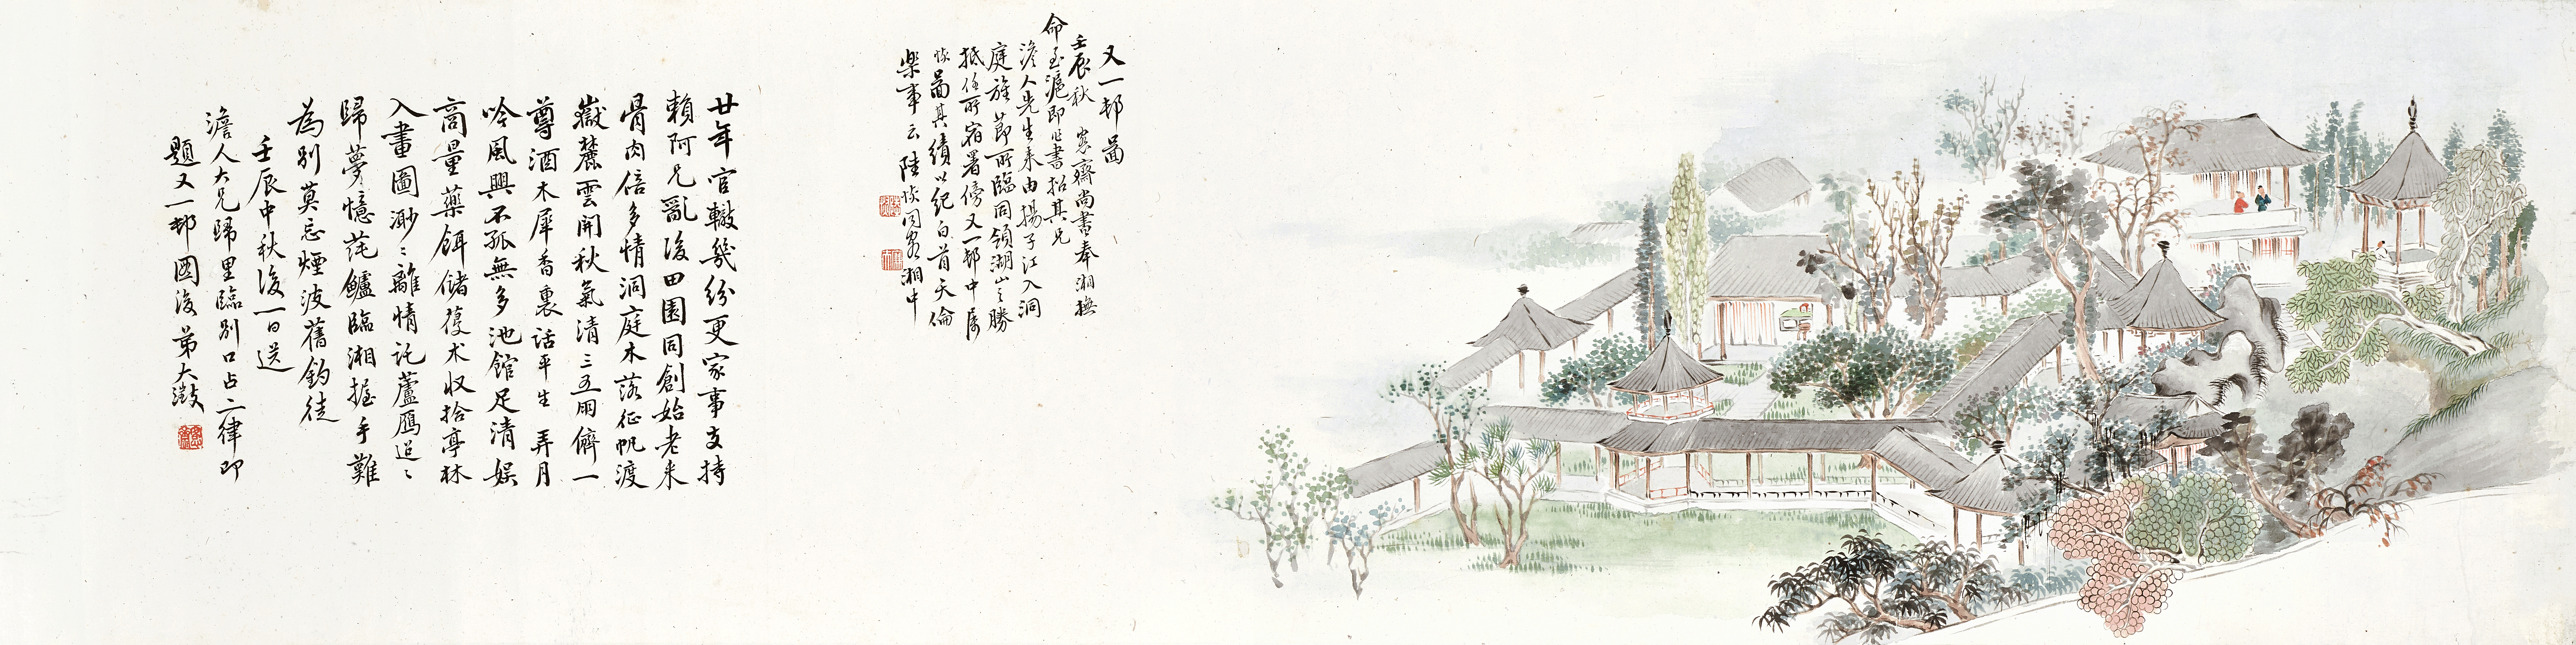 又一邨圖
壬辰秋窓齋尚書奉湘撫
命至滬即作書招其兄
澹人先生來由揚子江入洞
庭旌節所臨同領湖山之勝
抵任所宿署傍又一邨中屬
恢圖其績以紀白首天倫
樂事云陸恢同客湘中
廿年官轍幾紛更家事支持
賴阿兄亂後田園同創始老來
骨肉倍多情洞庭木落征帆渡
嶽麓雲開秋氣清三五開儕一
尊酒木犀香裏話平生弄月
吟風興不孤無多池館足清娛
高量藥餌儲葠朮收拾亭林
入畫圖渺〻離情託蘆雁迢〻
歸夢憶蒓鱸臨湘握手難
為別莫忘煙波舊釣徒
壬辰中秋後一日送
澹人大兄歸里臨別口占二律即
題又一邨圖後弟大澂